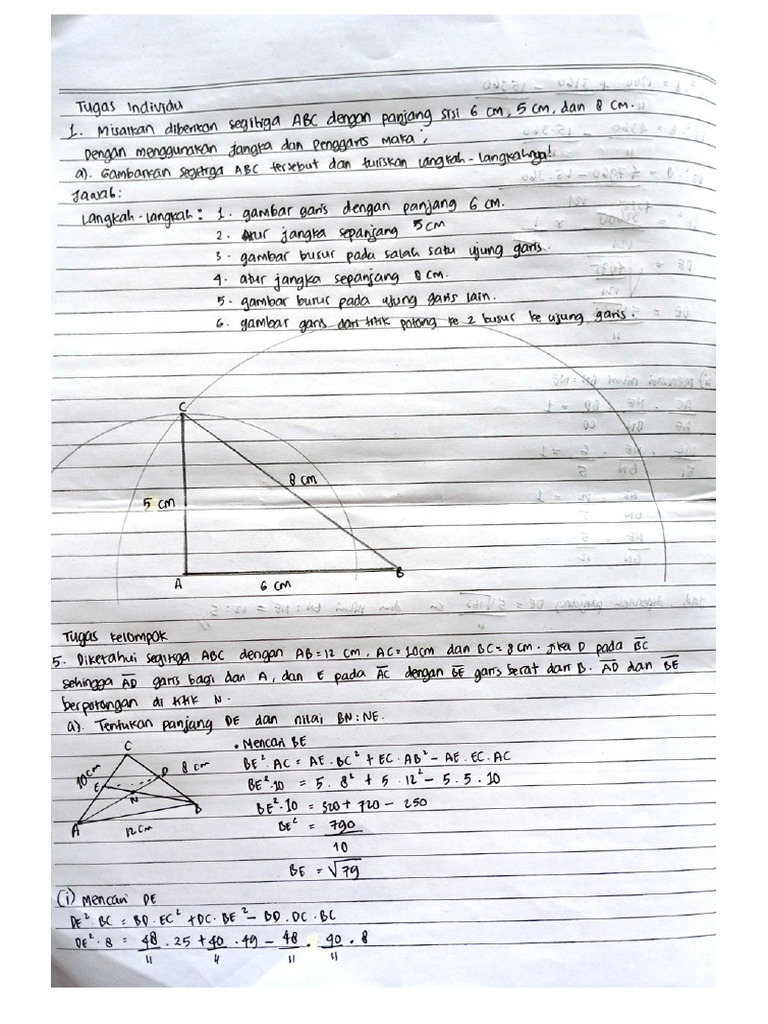 Tugas Individu
1. Misalkan diberikan segitiga ABC dengan panjang sisi 6 cm, 5 cm, dan 8 cm.
Dengan menggunakan jangka dan penggaris maka;
a). Gambarkan segitiga ABC tersebut dan tuliskan langkah-langkahnya!
Jawab:
Langkah-langkah: 1. gambar garis dengan panjang 6 cm.
2. Atur jangka sepanjang 5 cm
3. gambar busur pada salah satu ujung garis.
4. atur jangka sepanjang 8 cm.
5. gambar busur pada ujung garis lain.
6. gambar garis dari titik potong ke 2 busur ke ujung garis.
C
8 cm
5 cm
A
6 cm
B
Tugas kelompok
5. Diketahui segitiga ABC dengan AB=12 cm, AC=10cm dan BC=8cm. Jika D pada BC
sehingga AD garis bagi dari A, dan E pada AC dengan BE garis berat dari B. AD dan BE
berpotongan di titik N.
a). Tentukan panjang DE dan nilai BN:NE.
C
10cm
8 cm
E
D
N
A
B
12cm
• Mencari BE
BE²·AC = AE·BC² + EC·AB² - AE·EC·AC
BE²·10 = 5·8² + 5·12² - 5·5·10
BE²·10 = 320 + 720 - 250
BE² = 790/10
BE = √79
(i) Mencari DE
DE²·BC = BD·EC² + DC·BE² - BD·DC·BC
DE²·8 = 48/11 · 25 + 40/11 · 79 - 48/11 · 40/11 · 8